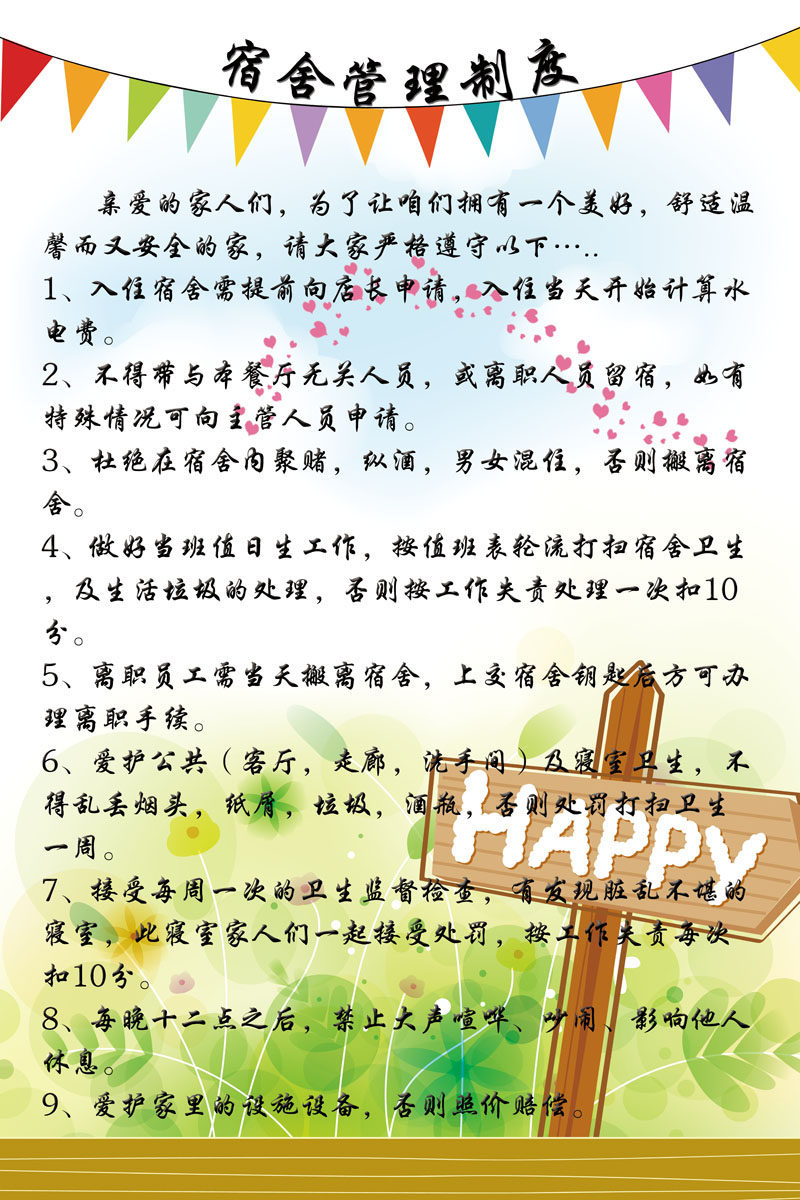 宿舍管理制度
亲爱的家人们，为了让咱们拥有一个美好，舒适温
馨而又安全的家，请大家严格遵守以下…..
1、入住宿舍需提前向店长申请，入住当天开始计算水
电费。
2、不得带与本餐厅无关人员，或离职人员留宿，如有
特殊情况可向主管人员申请。
3、杜绝在宿舍内聚赌，纵酒，男女混住，否则搬离宿
舍。
4、做好当班值日生工作，按值班表轮流打扫宿舍卫生
，及生活垃圾的处理，否则按工作失责处理一次扣10
分。
5、离职员工需当天搬离宿舍，上交宿舍钥匙后方可办
理离职手续。
6、爱护公共（客厅，走廊，洗手间）及寝室卫生，不
得乱丢烟头，纸屑，垃圾，酒瓶，否则处罚打扫卫生
一周。
HAPPY
7、接受每周一次的卫生监督检查，有发现脏乱不堪的
寝室，此寝室家人们一起接受处罚，按工作失责每次
扣10分。
8、每晚十二点之后，禁止大声喧哗、吵闹、影响他人
休息。
9、爱护家里的设施设备，否则照价赔偿。